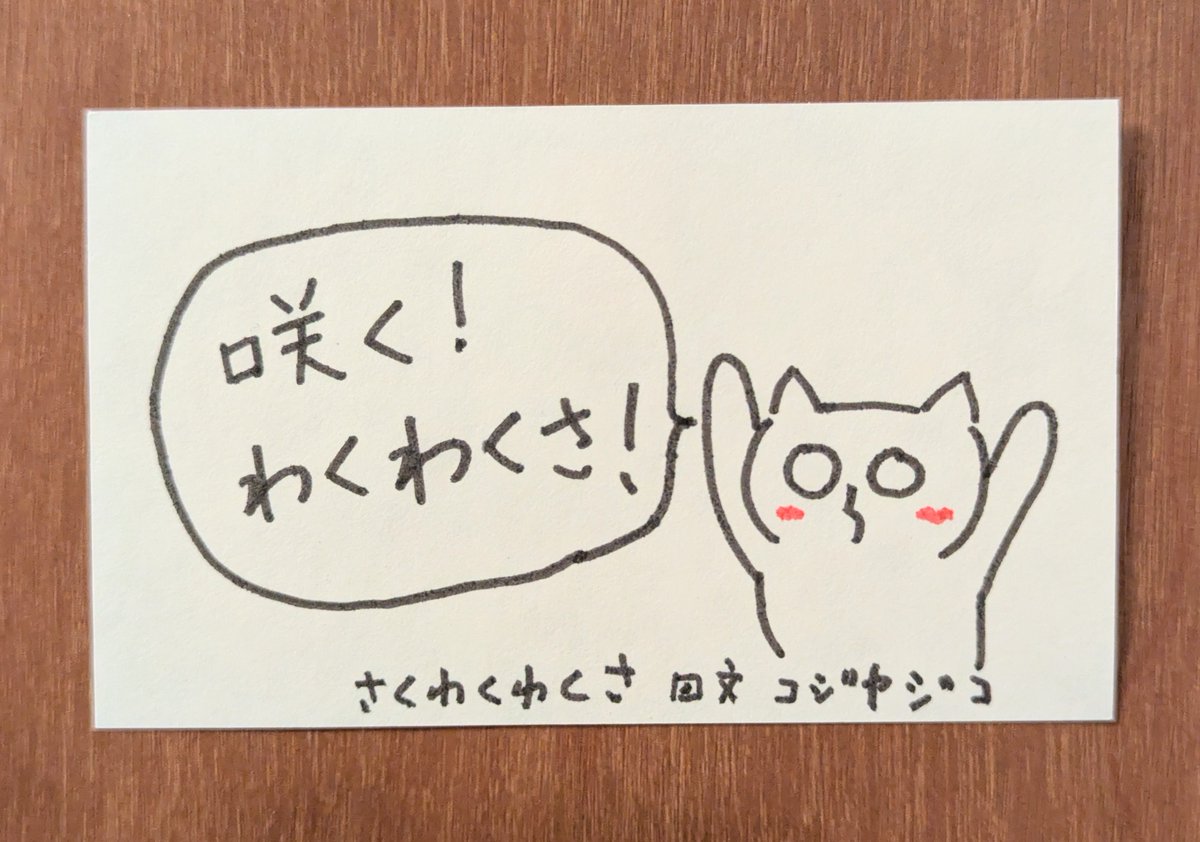 咲く!
わくわくさ!
さくわくわくさ 回文 コジヤジコ